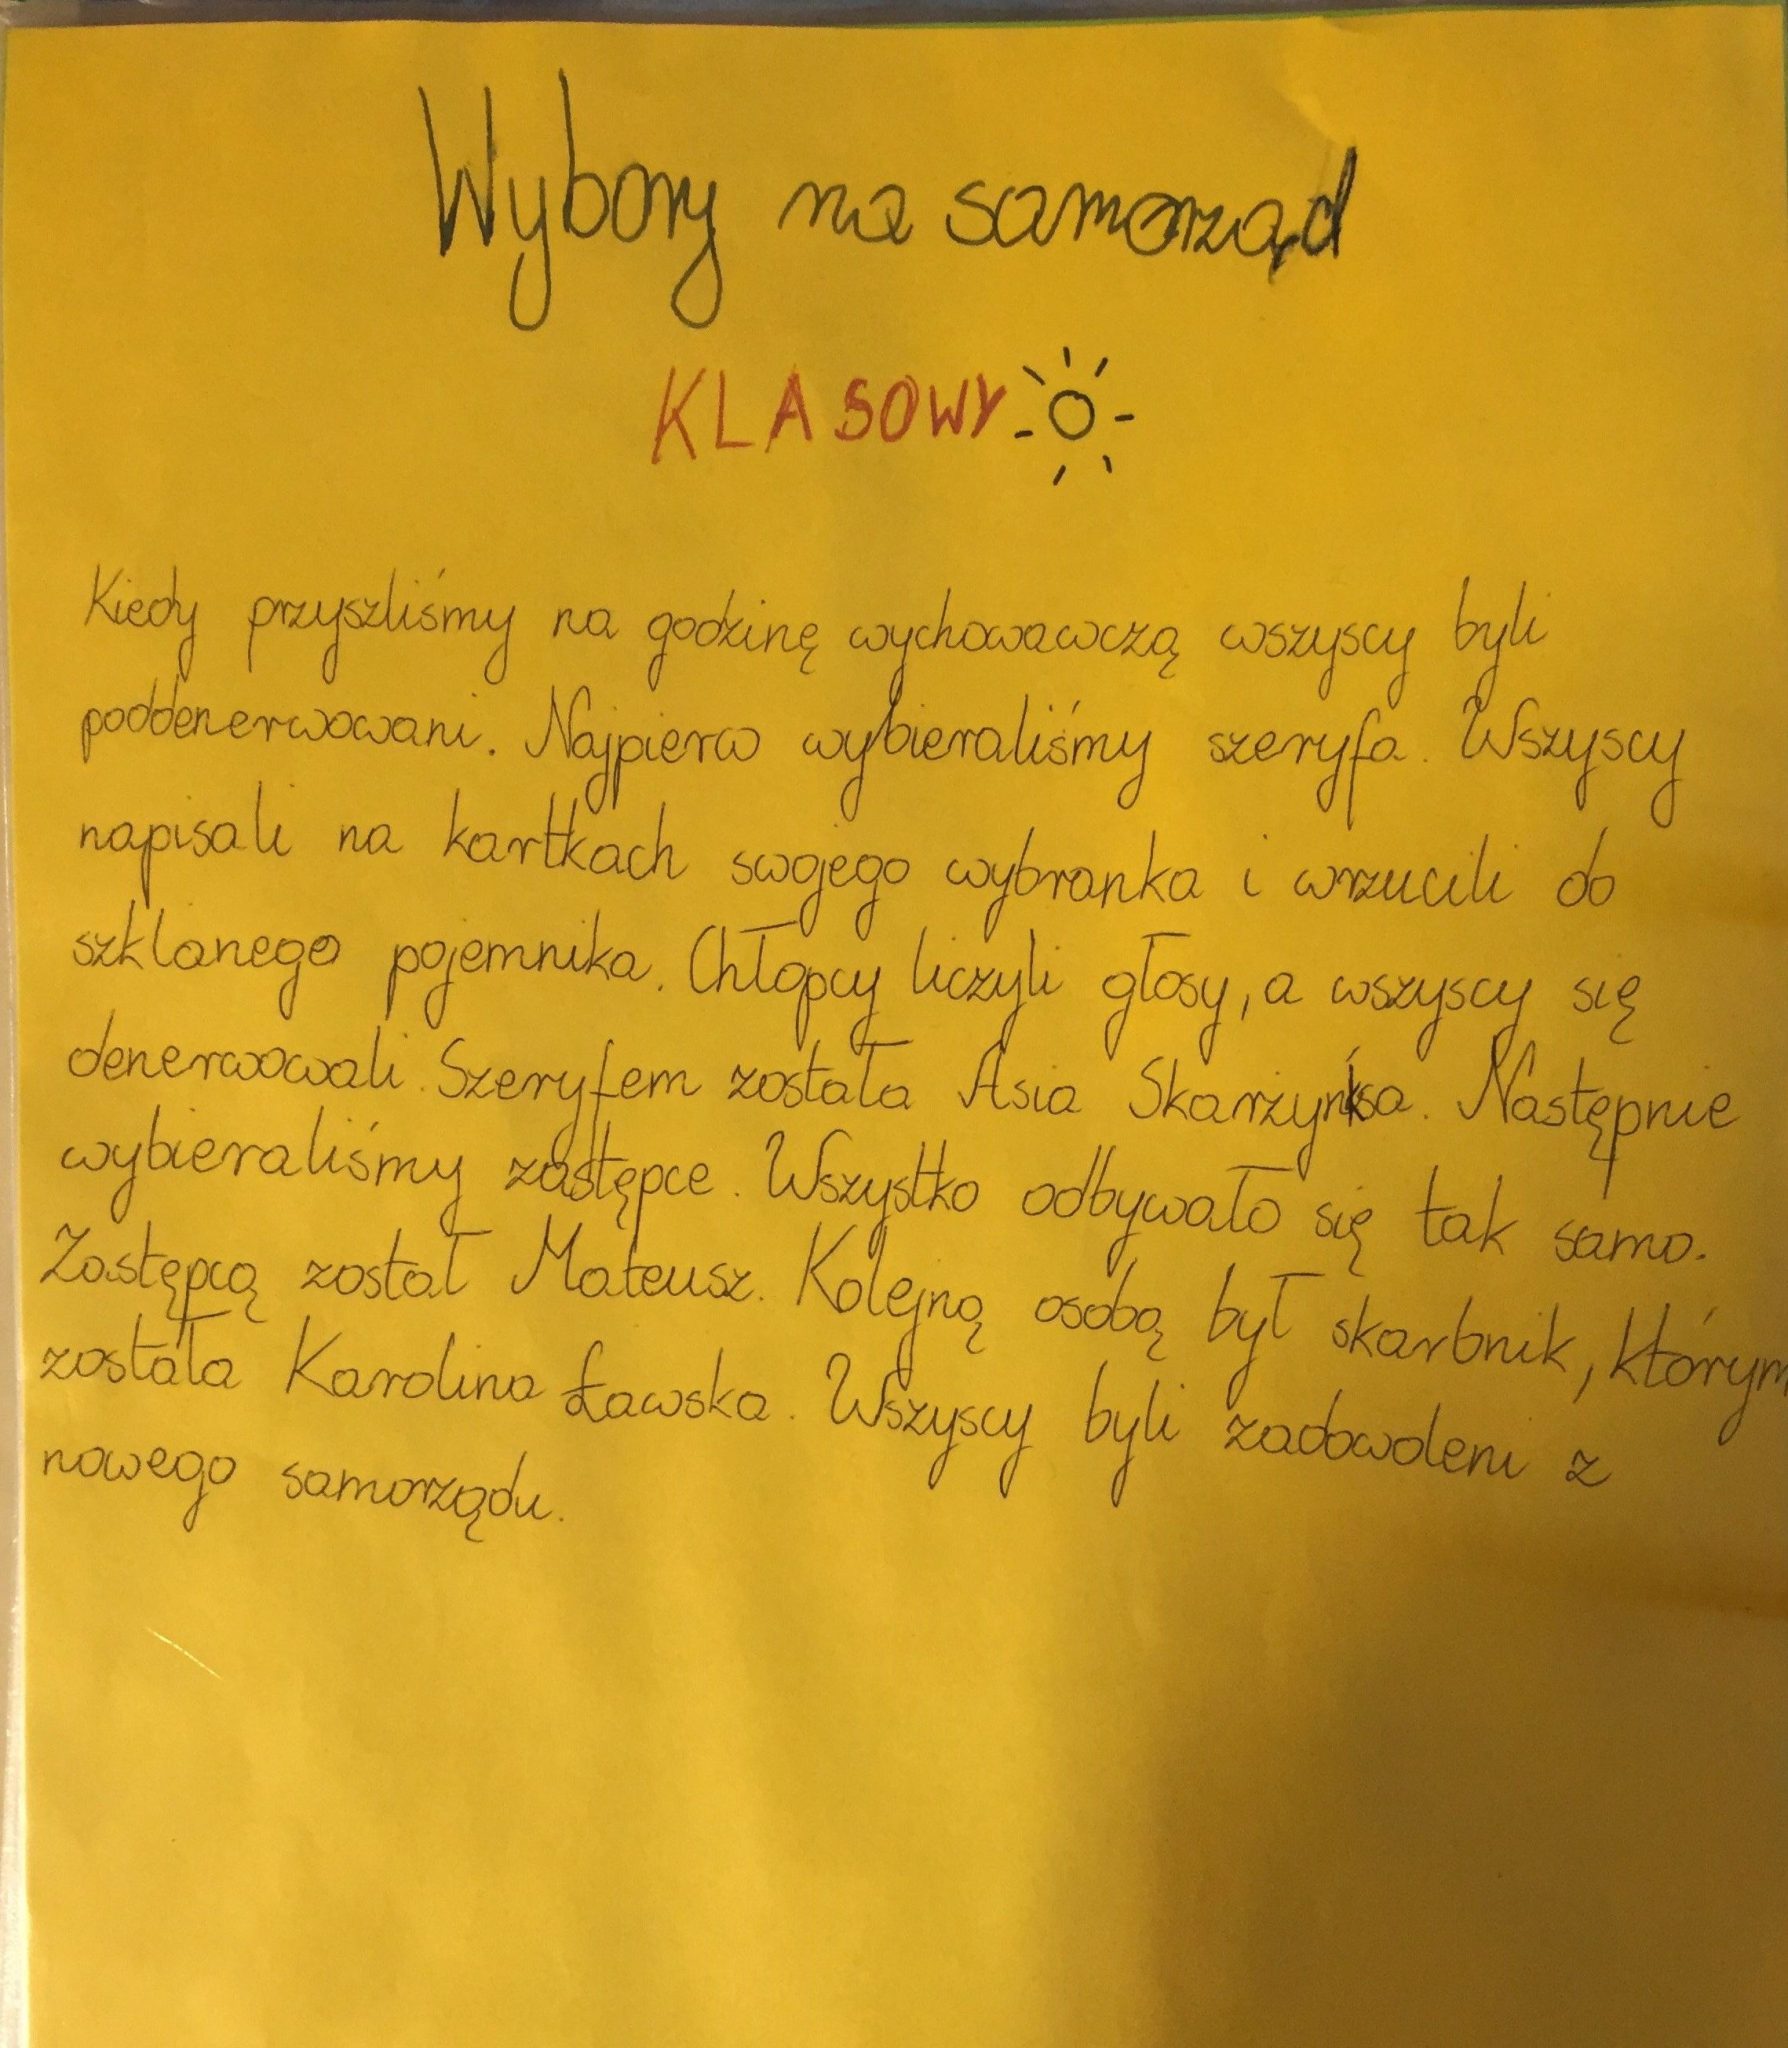 Wybory na samorząd
KLASOWY
Kiedy przyszliśmy na godzinę wychowawczą wszyscy byli
poddenerwowani. Najpierw wybieraliśmy szeryfa. Wszyscy
napisali na kartkach swojego wybranka i wrzucili do
szklanego pojemnika. Chłopcy liczyli głosy, a wszyscy się
denerwowali. Szeryfem została Asia Skarżyńksa. Następnie
wybieraliśmy zastępce. Wszystko odbywało się tak samo.
Zastępcą został Mateusz. Kolejną osobą był skarbnik, którym
została Karolina Ławska. Wszyscy byli zadowoleni z
nowego samorządu.